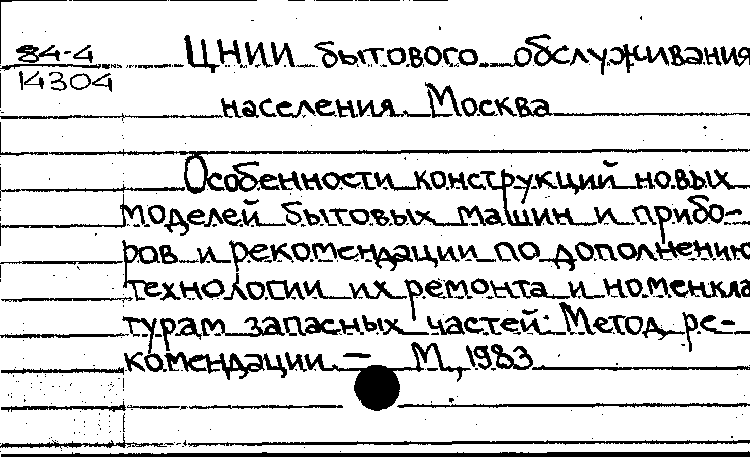 84-4
14304
ЦНИИ бытового обслуживания
населения. Москва
Особенности конструкций новых
моделей бытовых машин и прибо-
ров и рекомендации по дополнению
технологии их ремонта и номенкла
турам запасных частей: Метод. ре-
комендации. — М., 1983